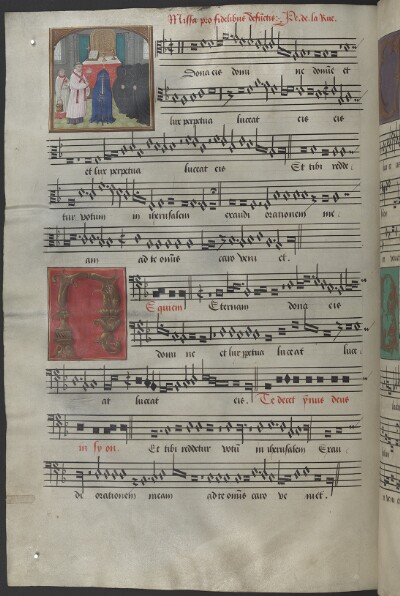 Missa pro fidelibus defunctis: Pe. de la Rue.
Dona eis domi ne donae et
lux perpetua luceat eis eis
et lux perpetua luceat eis Et tibi redde
tur votum in iherusalem exaudi orationem me
am ad te omnis caro veni et.
Equiem Eternam dona eis
domi ne et lux perpetua luceat luce
at luceat eis. Te decet ymnus deus
in syon. Et tibi reddetur votum in iherusalem Exau
di orationem meam ad te omnis caro ve niet.